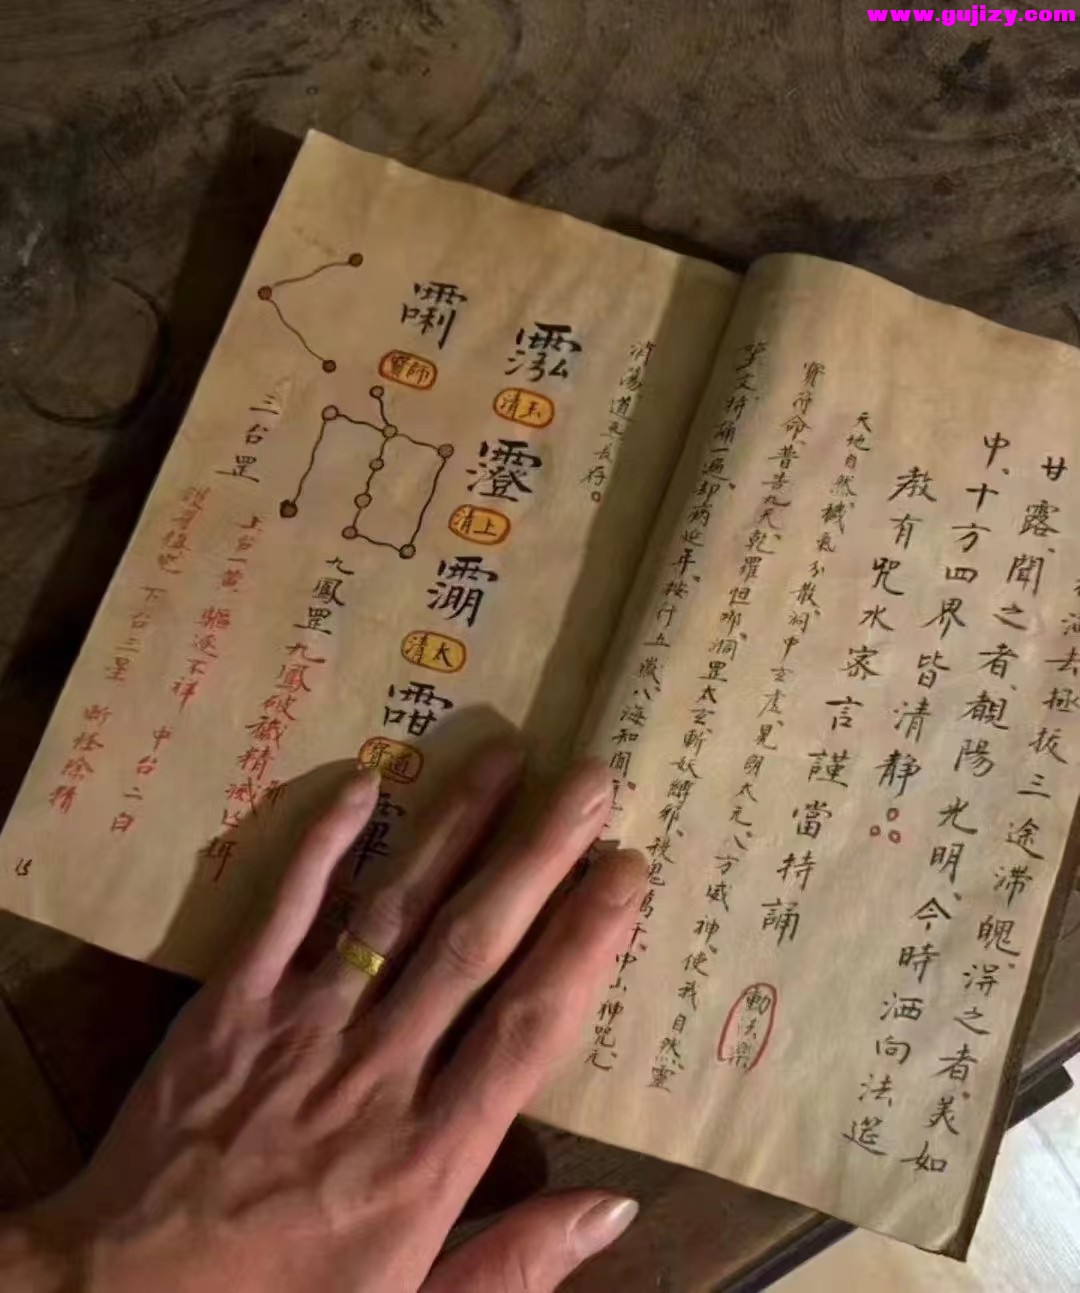 www.gujizy.com
海去拯拔三途滯魄洴之者美如
甘露聞之者覩陽光明今時洒向法筵
中十方四界皆清静
教有咒水家言謹當持誦
動法樂
天地自然穢氣分散洞中玄虛晃朗太元八方威神使我自然靈
寶符命普告九天乾羅怛那洞罡太玄斬妖縛邪殺鬼萬千中山神咒元
文持誦一遍却病延年按行五嶽八海知聞
消蕩道炁長存
玉清
上清
太清
道寶
師寶
九鳳罡
九鳳破穢精邪滅
三台罡
上台一黄驅逐不祥
中台二白
下台三星断怪除精
15